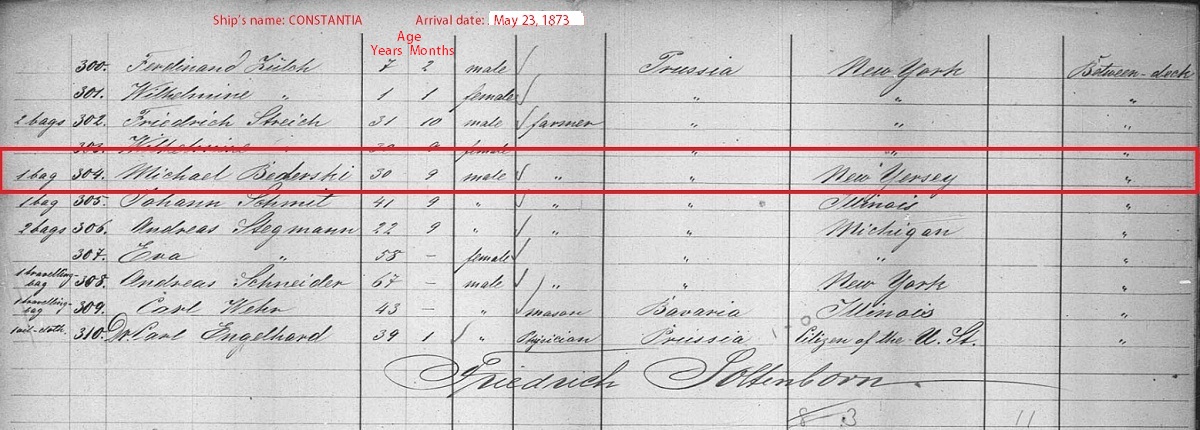 Ship's name: CONSTANTIA Arrival date: May 23, 1873
Age
Years Months
300. Ferdinand Zülch 7 2 male Prussia New York Between-deck
301. Wilhelmine " 1 1 female " " "
2 bags 302. Friedrich Streich 31 10 male farmer " " "
303. Wilhelmine " 30 9 female " " "
1 bag 304. Michael Bederski 30 9 male " " New Yersey "
1 bag 305. Johann Schmit 41 9 " " " Illinois "
2 bags 306. Andreas Stegmann 22 9 " " " Michigan "
307. Eva " 58 – female " " "
1 travelling-bag 308. Andreas Schneider 67 – male " " New York "
1 travelling-bag 309. Carl Wehr 43 – " mason Bavaria Illinois "
310. Dr Carl Engelhard 39 1 " Physician Prussia Citizen of the U. St. "
Friedrich Soltenborn
8 3 11